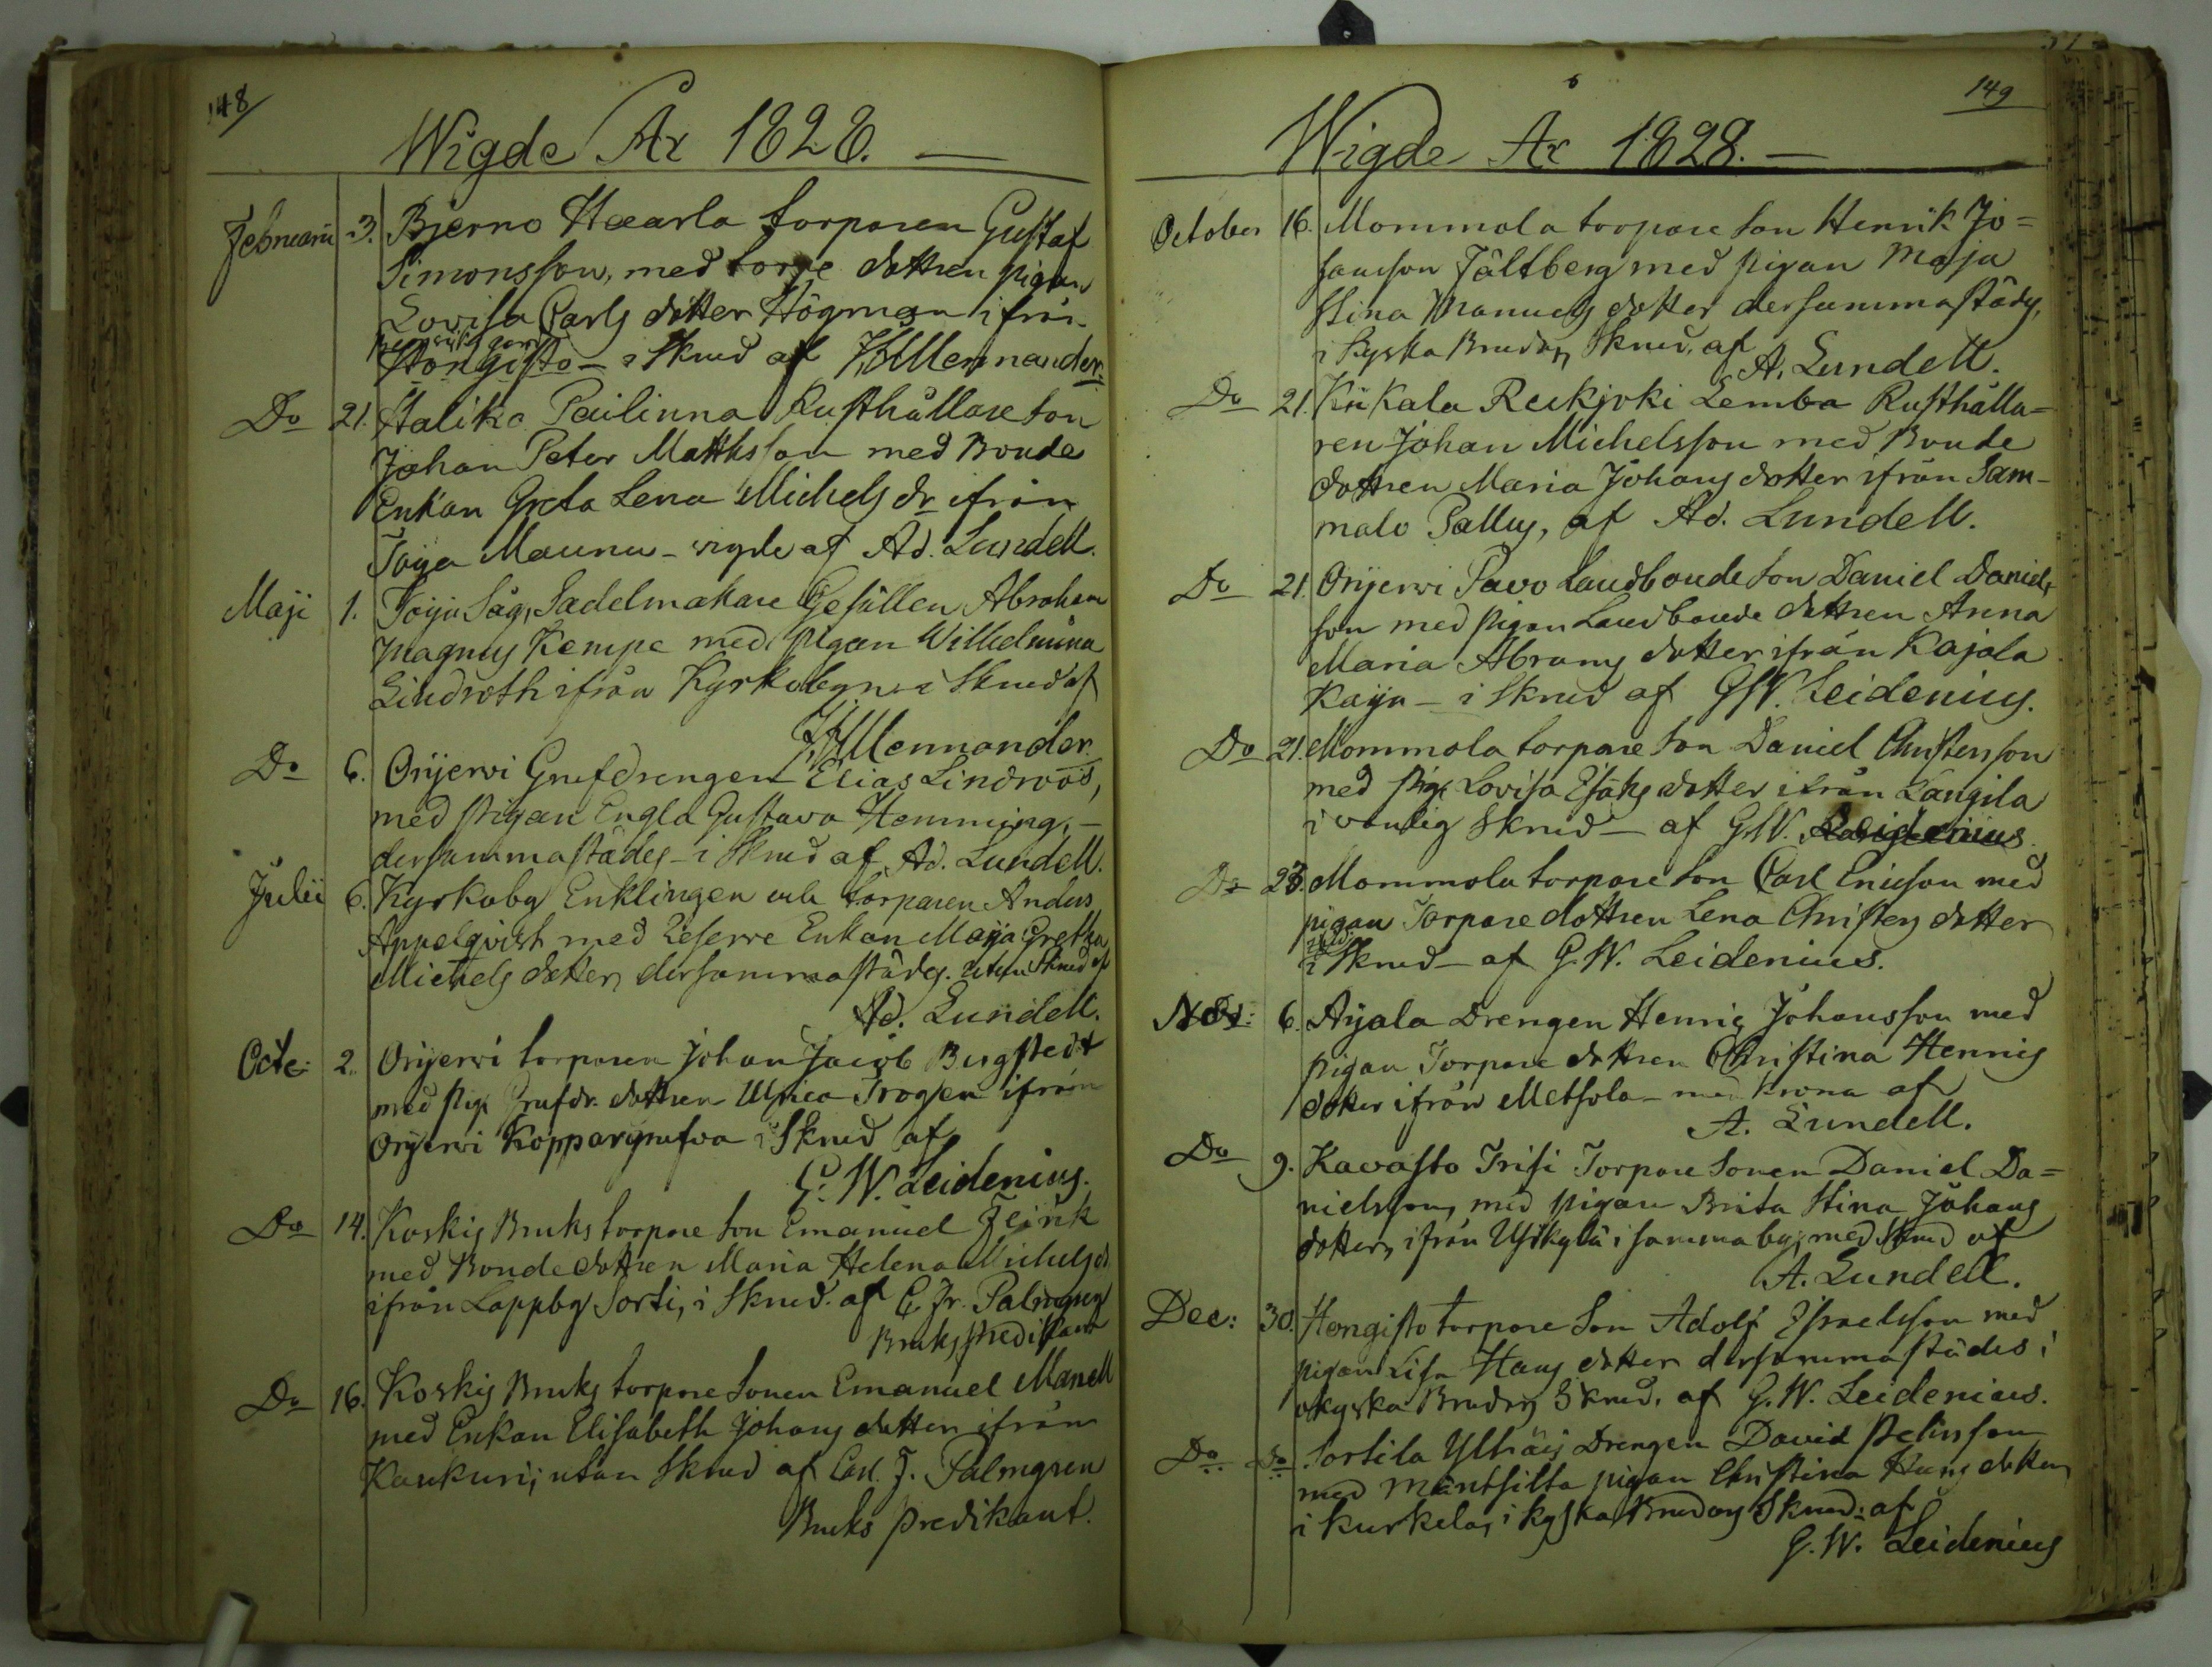 148
Wigde År 1828. —
Februarii 3. Bjerno Haarla torparen Gustaf
Simonsson, med torpe dottren pigan
Lovisa Carls dotter Högman ifrån
Hongisto – i Skrud af J. H. Mennander.
Do 21. Haliko Pailinna Rusthållare son
Johan Peter Mattsson med Bonde
Enkan Greta Lena Michels dr ifrån
Toija Maunu – vigde af Ad. Lundell.
Maji 1. Toija Såg, Sadelmakare Gesällen Abraham
Magnus Kempe med pigan Wilhelmina
Lindroth ifrån Kyrkobyn – i Skrud af
J. H. Mennander.
Do 6. Orijervi Grufdrengen Elias Lindroos,
med pigan Engla Gustava Hemming, –
dersammastädes – i Skrud af Ad. Lundell.
Julii 6. Kyrkoby Enklingen torparen Anders
Appelqvist med Enkan Maija Gretha
Michels dotter, dersammastädes. utan Skrud af
Ad. Lundell.
Octr: 2. Orijervi torparen Johan Jacob Bergstedt
med pig. Grufdr. dottren Ulrica Trogen ifrån
Orijervi Koppargrufva i Skrud af
G. W. Leidenius.
Do 14. Koskis Bruks torpare son Emanuel
med Bonde dottren Maria Helena Michels dr
ifrån Lappby Sorti, i Skrud. af C. Fr. Palmgren
Bruks predikant
Do 16. Koskis Bruks torpare Sonen Emanuel Manell
med Enkan Elisabeth Johans dotter ifrån
Kaukuri; utan Skrud af Carl. F. Palmgren
Bruks predikant.
149
Wigde År 1828. —
October 16. Mommola torpare son Henrik Jo=
hansson Fältberg med pigan Maja
Stina Manuels dotter dersammastäds,
i Kyrko Brudens Skrud. af
A. Lundell.
Do 21. Kiikala Reckjoki Lemba Rusthålla=
ren Johan Michelsson med Bonde
dottren Maria Johans dotter ifrån Sam-
malo Pallus, af Ad. Lundell.
Do 21. Orijervi Pavo Landbonde son Daniel Daniels
son med pigan Landbonde dottren Anna
Maria Abrams dotter ifrån Kajala
Kaija – i Skrud af G. W. Leidenius.
Do 21. Mommola torpare son Daniel Christersson
med pig. Lovisa Esaks dotter ifrån Langila
i vanlig Skrud – af G. W. Leidenius.
Do 23. Mommola torpare son Carl Ericsson med
pigan Torpare dottren Lena Christers dotter
i Skrud – af G. W. Leidenius.
Nov: 6. Aijala Drengen Henric Johansson med
pigan Torpare dottren Christina Henrics
dotter ifrån Metsola – med Krona af
A. Lundell.
Do 9. Kavasto Trisi Torpare Sonen Daniel Da=
nielsson, med pigan Brita Stina Johans
dotter, ifrån Ylikylä i samma by; med Skrud af
A. Lundell.
Dec: 30. Hongisto torpare Son Adolf Israelsson med
pigan Lisa Hans dotter dersammastädes i
okyska Brudens Skrud. af G. W. Leidenius.
Do Do Sortila Drengen David
med Mäntsilta pigan Christina Hans dotter
i Kurkela, i kyska Brudens Skrud: af
G. W. Leidenius